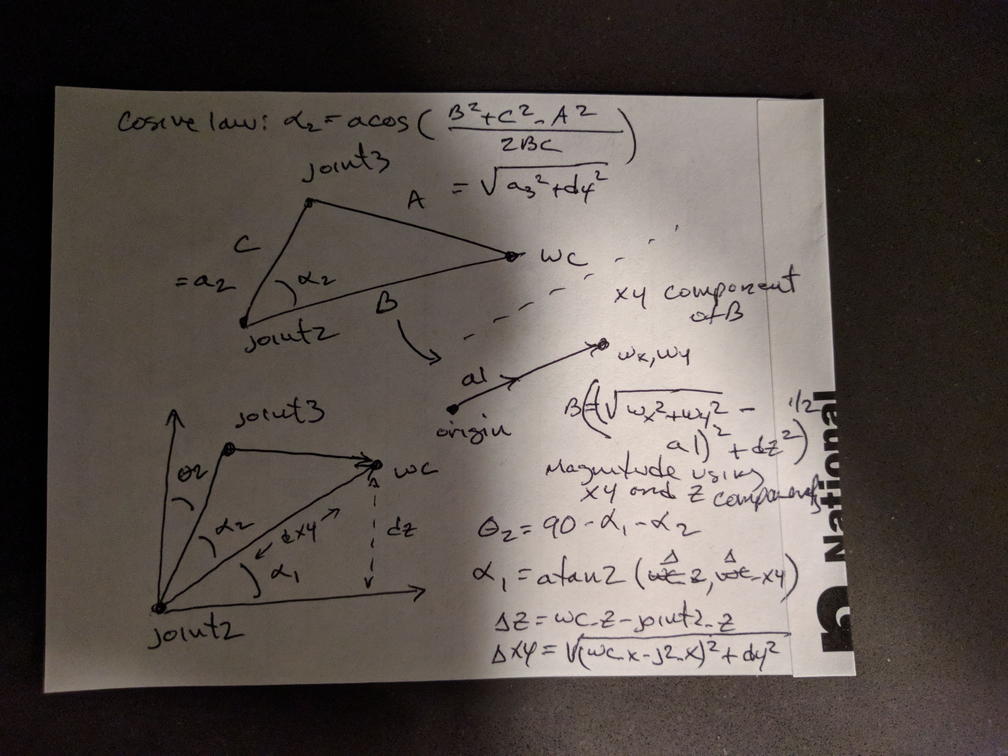 Cosine law: α₂ = acos( (B² + C² - A²) / 2BC )
joint3
A = √(a₃² + d4²)
C
= a₂
α₂
WC
B
joint2
xy component
of B
a1
wx, wy
origin
B = ((√(wx² + wy²) -
a1)² + dz²)^1/2
Magnitude using
xy and z components
joint3
θ2
WC
α₂
dxy
dz
α₁
joint2
θ₂ = 90 - α₁ - α₂
α₁ = atan2 (Δ z, Δ -xy)
Δz = WC-z - joint2-z
Δxy = √((WC-x - j2-x)² + dy²)
National